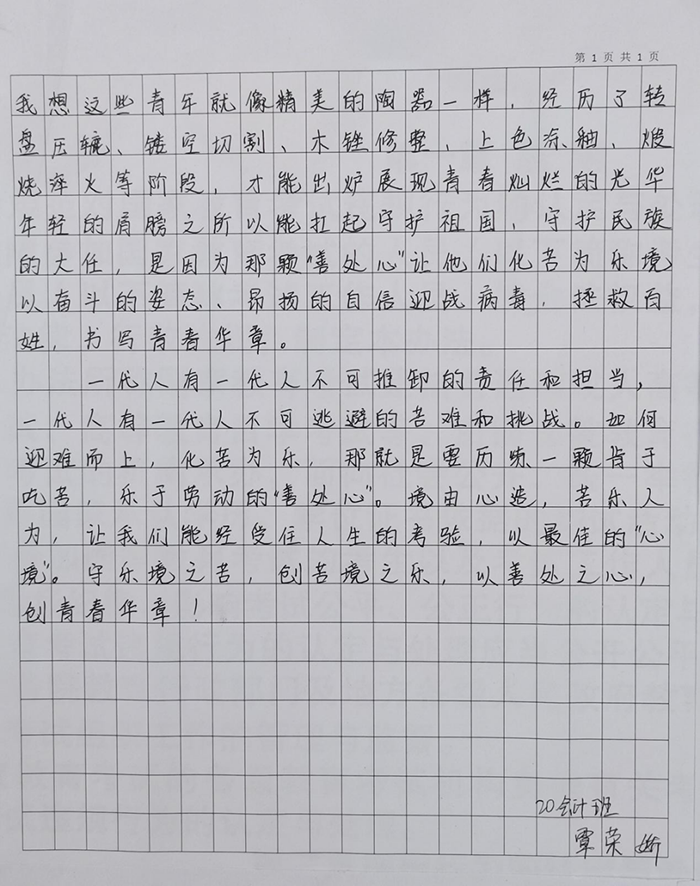 第 1 页 共 1 页
我想这些青年就像精美的陶器一样，经历了转
盘压辘、镂空切割、木锉修整，上色涂釉、煅
烧淬火等阶段，才能出炉展现青春灿烂的光华
年轻的肩膀之所以能扛起守护祖国、守护民族
的大任，是因为那颗“善处心”让他们化苦为乐境
以奋斗的姿态、昂扬的自信迎战病毒，拯救百
姓，书写青春华章。
一代人有一代人不可推卸的责任和担当，
一代人有一代人不可逃避的苦难和挑战。如何
迎难而上，化苦为乐，那就是要历炼一颗肯于
吃苦，乐于劳动的“善处心”。境由心造，苦乐人
为，让我们能经受住人生的考验，以最佳的“心
境”。守乐境之苦，创苦境之乐，以善处之心，
创青春华章！
20会计班
覃荣